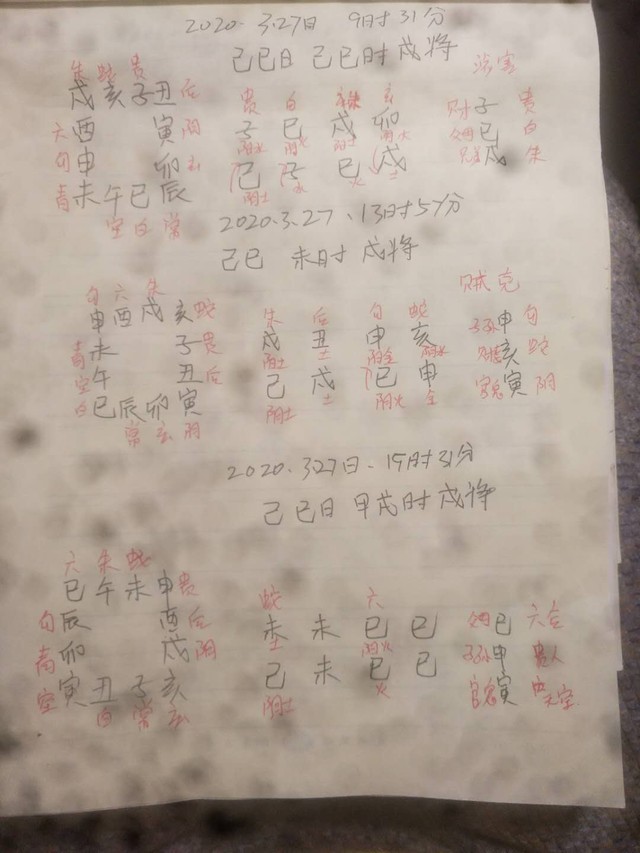 2020.3.27日 9时31分
己巳日 己巳时 戌将
朱 蛇 贵
戌 亥 子 丑 后 贵 白 朱 玄 财 子 贵
六 酉 寅 阴 子 巳 戌 卯 巳 白
勾 申 卯 玄 戌 朱
巳 子 巳 戌
青 未 午 巳 辰
空 白 常
2020.3.27、13时57分
己巳 未时 戌将
勾 六 朱 贼克
申 酉 戌 亥 蛇 朱 后 勾 蛇 子孙 申 勾
青 未 子 贵 戌 丑 申 亥 亥 蛇
空 午 丑 后 己 戌 巳 申 官鬼 寅 阴
白 巳 辰 卯 寅
常 玄 阴 阴土 土 阴火 金
2020.3.27日.19时31分
己巳日 甲戌时 戌将
六 朱 蛇
巳 午 未 申 贵 蛇 六
勾 辰 酉 后 未 未 巳 巳 巳 六合
青 卯 戌 阴 己 未 巳 巳 子孙 申 贵人
空 寅 丑 子 亥 阴土 火 官鬼 寅 天空
白 常 玄